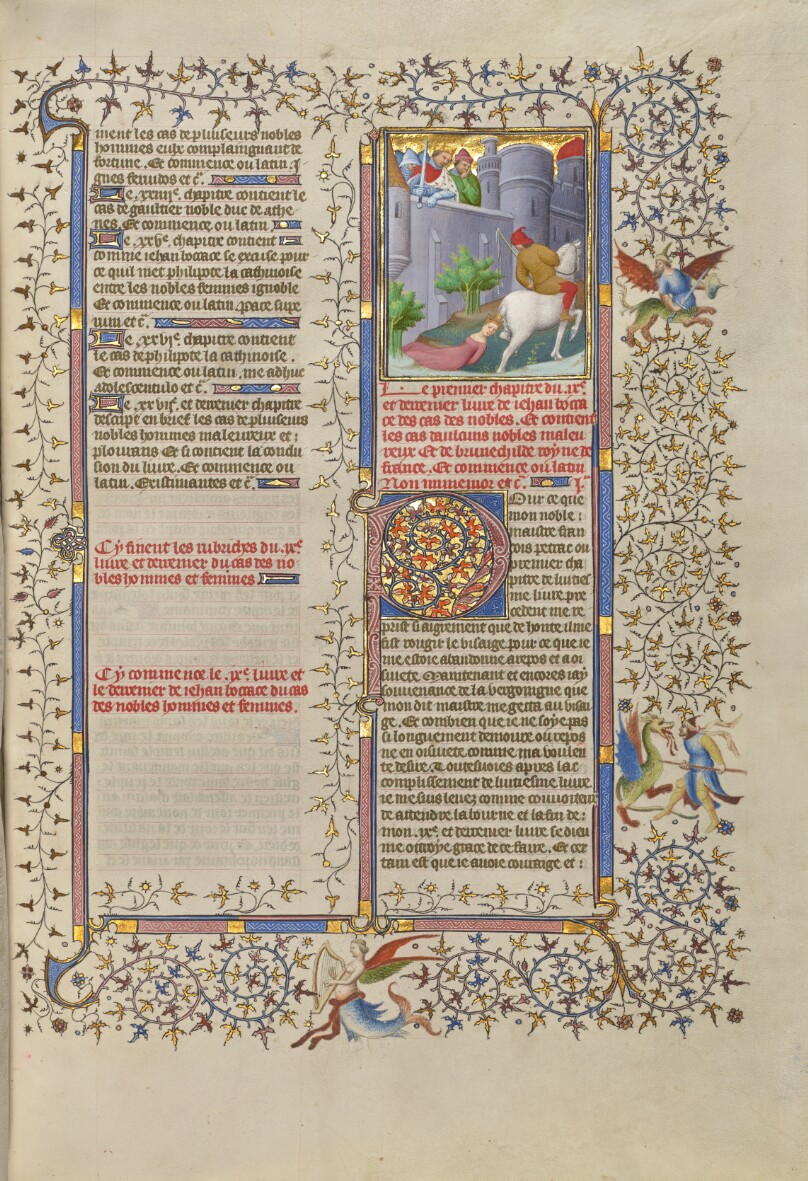 ment les cas de pluiseurs nobles
hommes eulx complaingnant de
fortune. Et commence ou latin. I
gnes feruidos et cֿ.
Le .xxiiii.e chapitre contient le
cas de gaultier noble duc de athe
nes. Et commence ou latin
Le .xxv.e chapitre contient
comme iehan boccace se excuse pour
ce quil met philipote la cathinoise
entre les nobles femmes ignoble
Et commence ou latin. pace supe
rum et cֿ.
Le .xxvi.e chapitre contient
le cas de philipote la cathinoise.
Et commence ou latin. me adhuc
adolescentulo et cֿ.
Le .xxvii.e et derrenier chapitre
descript en brief les cas de pluiseurs
nobles hommes maleureux et :
plourans Et si contient la conclu
sion du liure. Et commence ou
latin. Existimantes et cֿ.
Cy finent les rubriches du .ix.e
liure et derrenier du cas des no
bles hommes et femmes
Cy commence le .ix.e liure et
le derrenier de iehan boccace du cas
des nobles hommes et femmes.
Le premier chapitre du .ix.e
et derrenier liure de iehan bocca
ce des cas des nobles. Et contient
les cas daulcuns nobles maleu
reux Et de brunechilde royne de
france. Et commence ou latin
Non inmemor et cֿ.
Pour ce que
mon noble :
maistre fran
cois petrac ou
premier cha
pitre de luities
me liure pre
cedent me re
prist si aigrement que de honte il me
fist rougir le visaige pour ce que ie
me estoie abandonne a repos et a oi
siuete Maintenant et encores iay
souuenance de la vergongne que
mon dit maistre me gecta au visai
ge. Et combien que ie ne soye pas
si longuement demoure ou repos
ne en oisiuete comme ma voulen
te desire. Toutesuoies apres lac
complissement de luitiesme liure
ie me suis leuez comme conuoiteux
de attendre la bourne et la fin de :
mon .ix.e et derrenier liure se dieu
me ottroye grace de ce faire. Et cer
tain est que ie auoie couraige et :